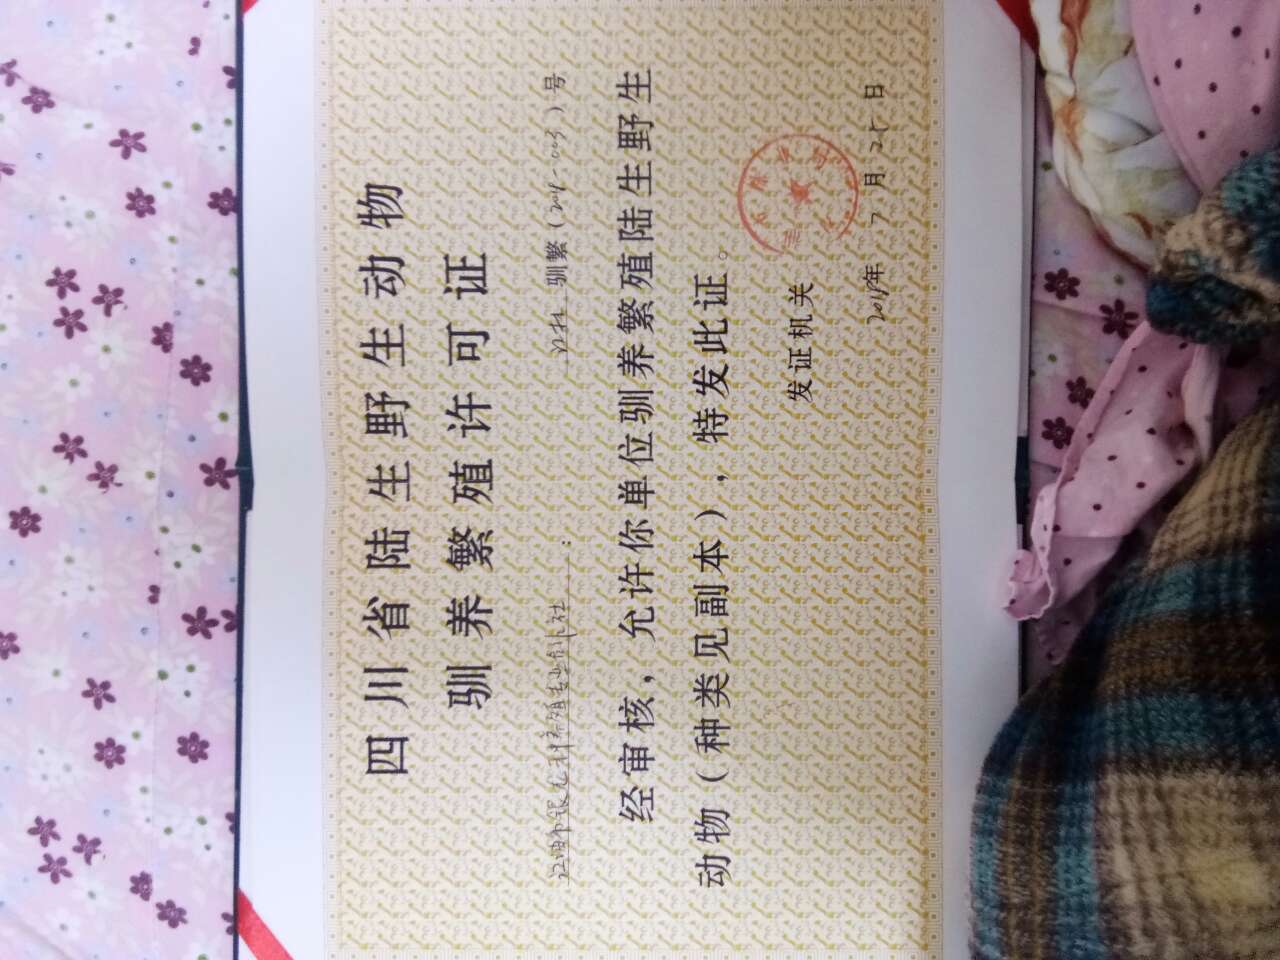 四川省陆生野生动物
驯养繁殖许可证
江林 驯繁（2014-003）号
江油市银龙养殖专业合作社：
经审核，允许你单位驯养繁殖陆生野生
动物（种类见副本），特发此证。
发证机关
年 7 月 日